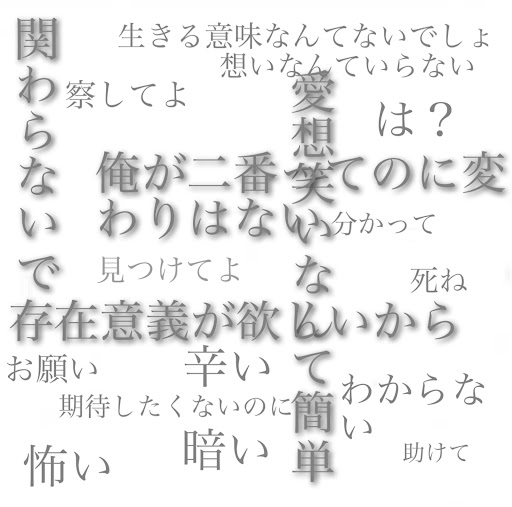 関わらないで
生きる意味なんてないでしょ
想いなんていらない
察してよ
愛想笑いなんて簡単
は？
俺が二番ってのに変
わりはない
分かって
見つけてよ
死ね
存在意義が欲しいから
お願い
辛い
わからな
い
期待したくないのに
暗い
助けて
怖い